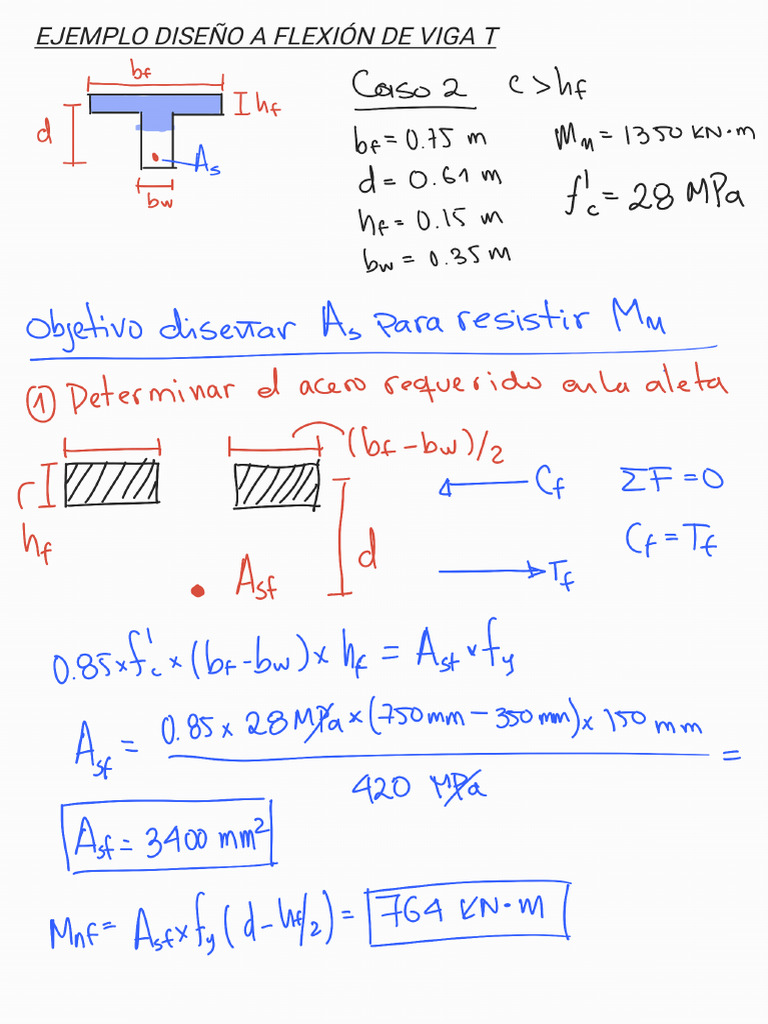 EJEMPLO DISEÑO A FLEXIÓN DE VIGA T
bf
hf
d
As
bw
Caso 2 c > hf
bf = 0.75 m
Mu = 1350 KN·m
d = 0.61 m
f'c = 28 MPa
hf = 0.15 m
bw = 0.35 m
Objetivo diseñar As para resistir Mu
① Determinar el acero requerido en la aleta
(bf - bw)/2
hf
d
Asf
Cf
Tf
ΣF = 0
Cf = Tf
0.85 × f'c × (bf - bw) × hf = Asf × fy
Asf = 0.85 × 28 MPa × (750 mm - 350 mm) × 150 mm =
420 MPa
Asf = 3400 mm²
Mnf = Asf × fy (d - hf/2) = 764 KN·m